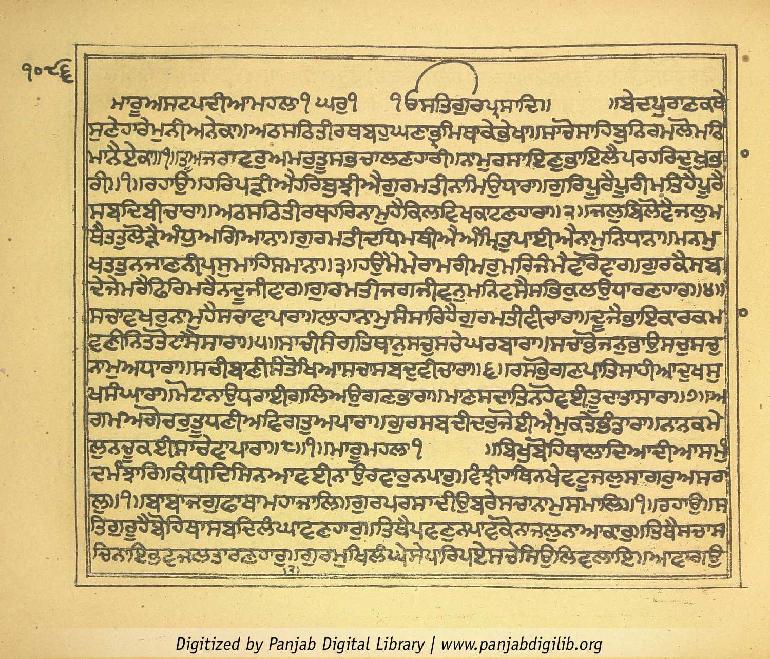 ੧੦੮੬
ਮਾਰੂਅਸਟਪਦੀਆਮਹਲਾ੧ ਘਰੁ੧ ੴਸਤਿਗੁਰਪ੍ਰਸਾਦਿ॥ ॥ਬੇਦਪੁਰਾਣਕਥੇ
ਸੁਣੇਹਾਰੇਮੁਨੀਅਨੇਕਾ॥ਅਠਸਠਿਤੀਰਥਬਹੁਘਣਾਭ੍ਰਮਿਥਾਕੇਭੇਖਾ॥ਸਾਚੋਸਾਹਿਬੁਨਿਰਮਲੋਮਨਿ
ਮਾਨੈਏਕਾ॥੧॥ਤੂਅਜਰਾਵਰੁਅਮਰੁਤੂਸਭਚਾਲਣਹਾਰੀ॥ਨਾਮੁਰਸਾਇਣੁਭਾਇਲੈਪਰਹਰਿਦੁਖੁਭਾ
ਰੀ॥੧॥ਰਹਾਉ॥ਹਰਿਪੜੀਐਹਰਿਬੁਝੀਐਗੁਰਮਤੀਨਾਮਿਉਧਾਰਾ॥ਗੁਰਿਪੂਰੈਪੂਰੀਮਤਿਹੈਪੂਰੈ
ਸਬਦਿਬੀਚਾਰਾ॥ਅਠਸਠਿਤੀਰਥਹਰਿਨਾਮੁਹੈਕਿਲਵਿਖਕਾਟਣਹਾਰਾ॥੨॥ਜਲੁਬਿਲੋਵੈਜਲੁਮ
ਥੈਤਤੁਲੋੜੈਅੰਧੁਅਗਿਆਨਾ॥ਗੁਰਮਤੀਦਧਿਮਥੀਐਅੰਮ੍ਰਿਤੁਪਾਈਐਨਾਮੁਨਿਧਾਨਾ॥ਮਨਮੁ
ਖਤਤੁਨਜਾਣਨੀਪਸੂਮਾਹਿਸਮਾਨਾ॥੩॥ਹਉਮੈਮੇਰਾਮਰੀਮਰੁਮਰਿਜੰਮੈਵਾਰੋਵਾਰ॥ਗੁਰਕੈਸਬ
ਦੇਜੇਮਰੈਫਿਰਿਮਰੈਨਦੂਜੀਵਾਰ॥ਗੁਰਮਤੀਜਗਜੀਵਨੁਮਨਿਵਸੈਸਭਿਕੁਲਉਧਾਰਣਹਾਰ॥੪॥
ਸਚਾਵਖਰੁਨਾਮੁਹੈਸਚਾਵਾਪਾਰਾ॥ਲਾਹਾਨਾਮੁਸੰਸਾਰਿਹੈਗੁਰਮਤੀਵੀਚਾਰਾ॥ਦੂਜੈਭਾਇਕਾਰਕਮਾ
ਵਣੀਨਿਤਤੋਟਾਸੈਸਾਰਾ॥੫॥ਸਾਚੀਸੰਗਤਿਥਾਨੁਸਚੁਸਚੇਘਰਬਾਰਾ॥ਸਚਾਭੋਜਨੁਭਾਉਸਚੁਸਚੁ
ਨਾਮੁਅਧਾਰਾ॥ਸਚੀਬਾਣੀਸੰਤੋਖਿਆਸਚਾਸਬਦੁਵੀਚਾਰਾ॥੬॥ਰਸਭੋਗਣਪਾਤਿਸਾਹੀਆਦੁਖਸੁ
ਖਸੰਘਾਰਾ॥ਮੋਟਾਨਾਉਧਰਾਈਐਗਲਿਅਉਗਣਭਾਰਾ॥ਮਾਣਸਦਾਤਿਨਹੋਵਈਤੂਦਾਤਾਸਾਰਾ॥੭॥ਅ
ਗਮਅਗੋਚਰੁਤੂਧਣੀਅਵਿਗਤੁਅਪਾਰਾ॥ਗੁਰਸਬਦੀਦਰੁਜੋਈਐਮੁਕਤੇਭੰਡਾਰਾ॥ਨਾਨਕਮੇ
ਲੁਨਚੂਕਈਸਾਚੇਵਾਪਾਰਾ॥੮॥੧॥ਮਾਰੂਮਹਲਾ੧ ॥ਬਿਖੁਬੋਹਿਥਾਲਾਦਿਆਦੀਆਸਮੁੰ
ਦਮੰਝਾਰਿ॥ਕੰਧੀਦਿਸਿਨਆਵਈਨਾਉਰਵਾਰੁਨਪਾਰੁ॥ਵੰਝੀਹਾਥਿਨਖੇਵਟੂਜਲੁਸਾਗਰੁਅਸਰਾ
ਲੁ॥੧॥ਬਾਬਾਜਗੁਫਾਥਾਮਹਾਜਾਲਿ॥ਗੁਰਪਰਸਾਦੀਉਬਰੇਸਚਾਨਾਮੁਸਮਾਲਿ॥੧॥ਰਹਾਉ॥ਸ
ਤਿਗੁਰੂਹੈਬੋਹਿਥਾਸਬਦਿਲੰਘਾਵਣਹਾਰੁ॥ਤਿਥੈਪਵਣੁਨਪਾਵਕੋਨਾਜਲੁਨਾਆਕਾਰੁ॥ਤਿਥੈਸਚਾਸ
ਚਿਨਾਇਭਵਜਲਤਾਰਣਹਾਰੁ॥੨॥ਗੁਰਮੁਖਿਲੰਘੇਸੇਪਾਰਿਪਏਸਚੇਸਿਉਲਿਵਲਾਇ॥ਆਵਾਗਉ
Digitized by Panjab Digital Library | www.panjabdigilib.org